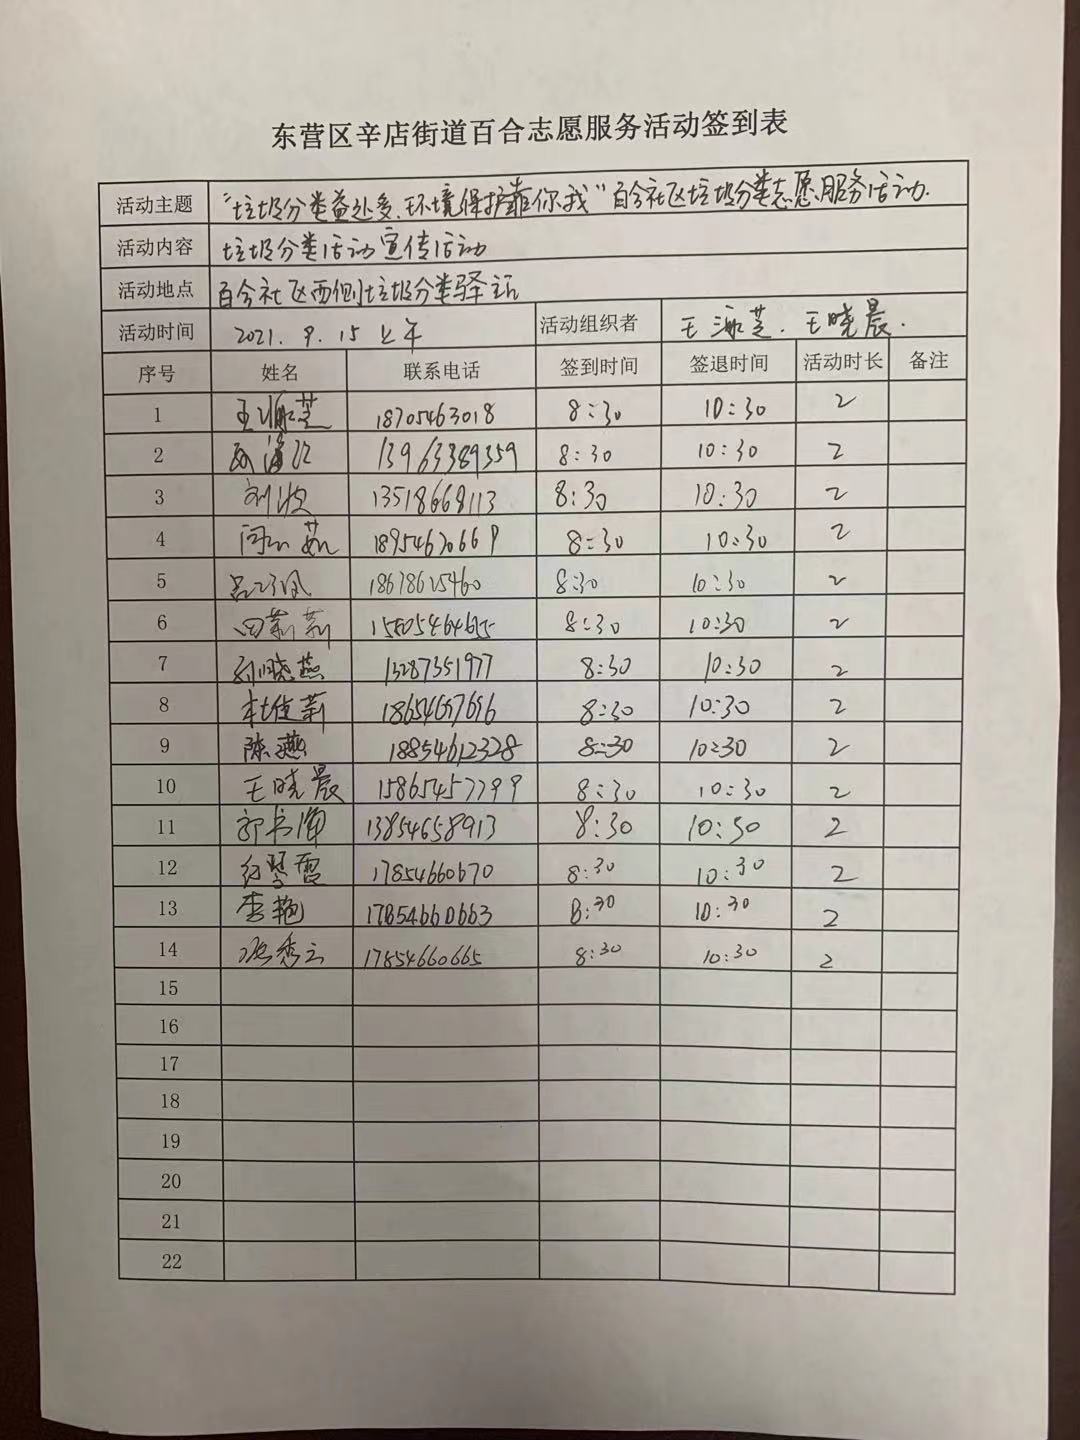 东营区辛店街道百合志愿服务活动签到表
活动主题 “垃圾分类益处多、环境保护靠你我”百合社区垃圾分类志愿服务活动.
活动内容 垃圾分类活动宣传活动
活动地点 百合社区西侧垃圾分类驿站
活动时间 2021. 9. 15 上午 活动组织者 王淑芝. 王晓晨.
序号 姓名 联系电话 签到时间 签退时间 活动时长 备注
1 王淑芝 18705463018 8:30 10:30 2
2 13963389359 8:30 10:30 2
3 刘波 13518668113 8:30 10:30 2
4 18954620669 8:30 10:30 2
5 18678625460 8:30 10:30 2
6 田莉莉 8:30 10:30 2
7 孙晓燕 13287351977 8:30 10:30 2
8 杜佳莉 18654657656 8:30 10:30 2
9 陈燕 18854612328 8:30 10:30 2
10 王晓晨 15865457799 8:30 10:30 2
11 13854658913 8:30 10:30 2
12 17854660670 8:30 10:30 2
13 李艳 17854660663 8:30 10:30 2
14 17854660665 8:30 10:30 2
15
16
17
18
19
20
21
22